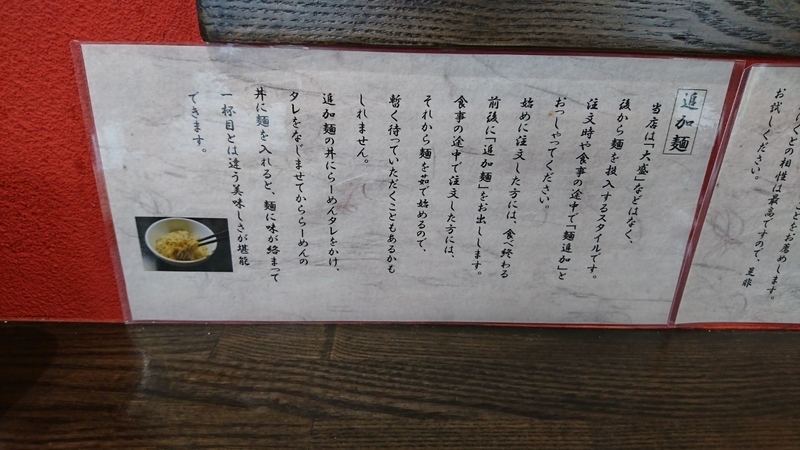 追加麺
当店は「大盛」などはなく、
後から麺を投入するスタイルです。
注文時や食事の途中で「麺追加」と
おっしゃってください。
始めに注文した方には、食べ終わる
前後に「追加麺」をお出しします。
食事の途中で注文した方には、
それから麺を茹で始めるので、
暫く待っていただくこともあるかも
しれません。
追加麺の丼にらーめんタレをかけ、
タレをなじませてかららーめんの
丼に麺を入れると、麺に味が絡まって
一杯目とは違う美味しさが堪能
できます。
ことをお薦めします。
けくどの相性は最高ですので、是非
お試しください。